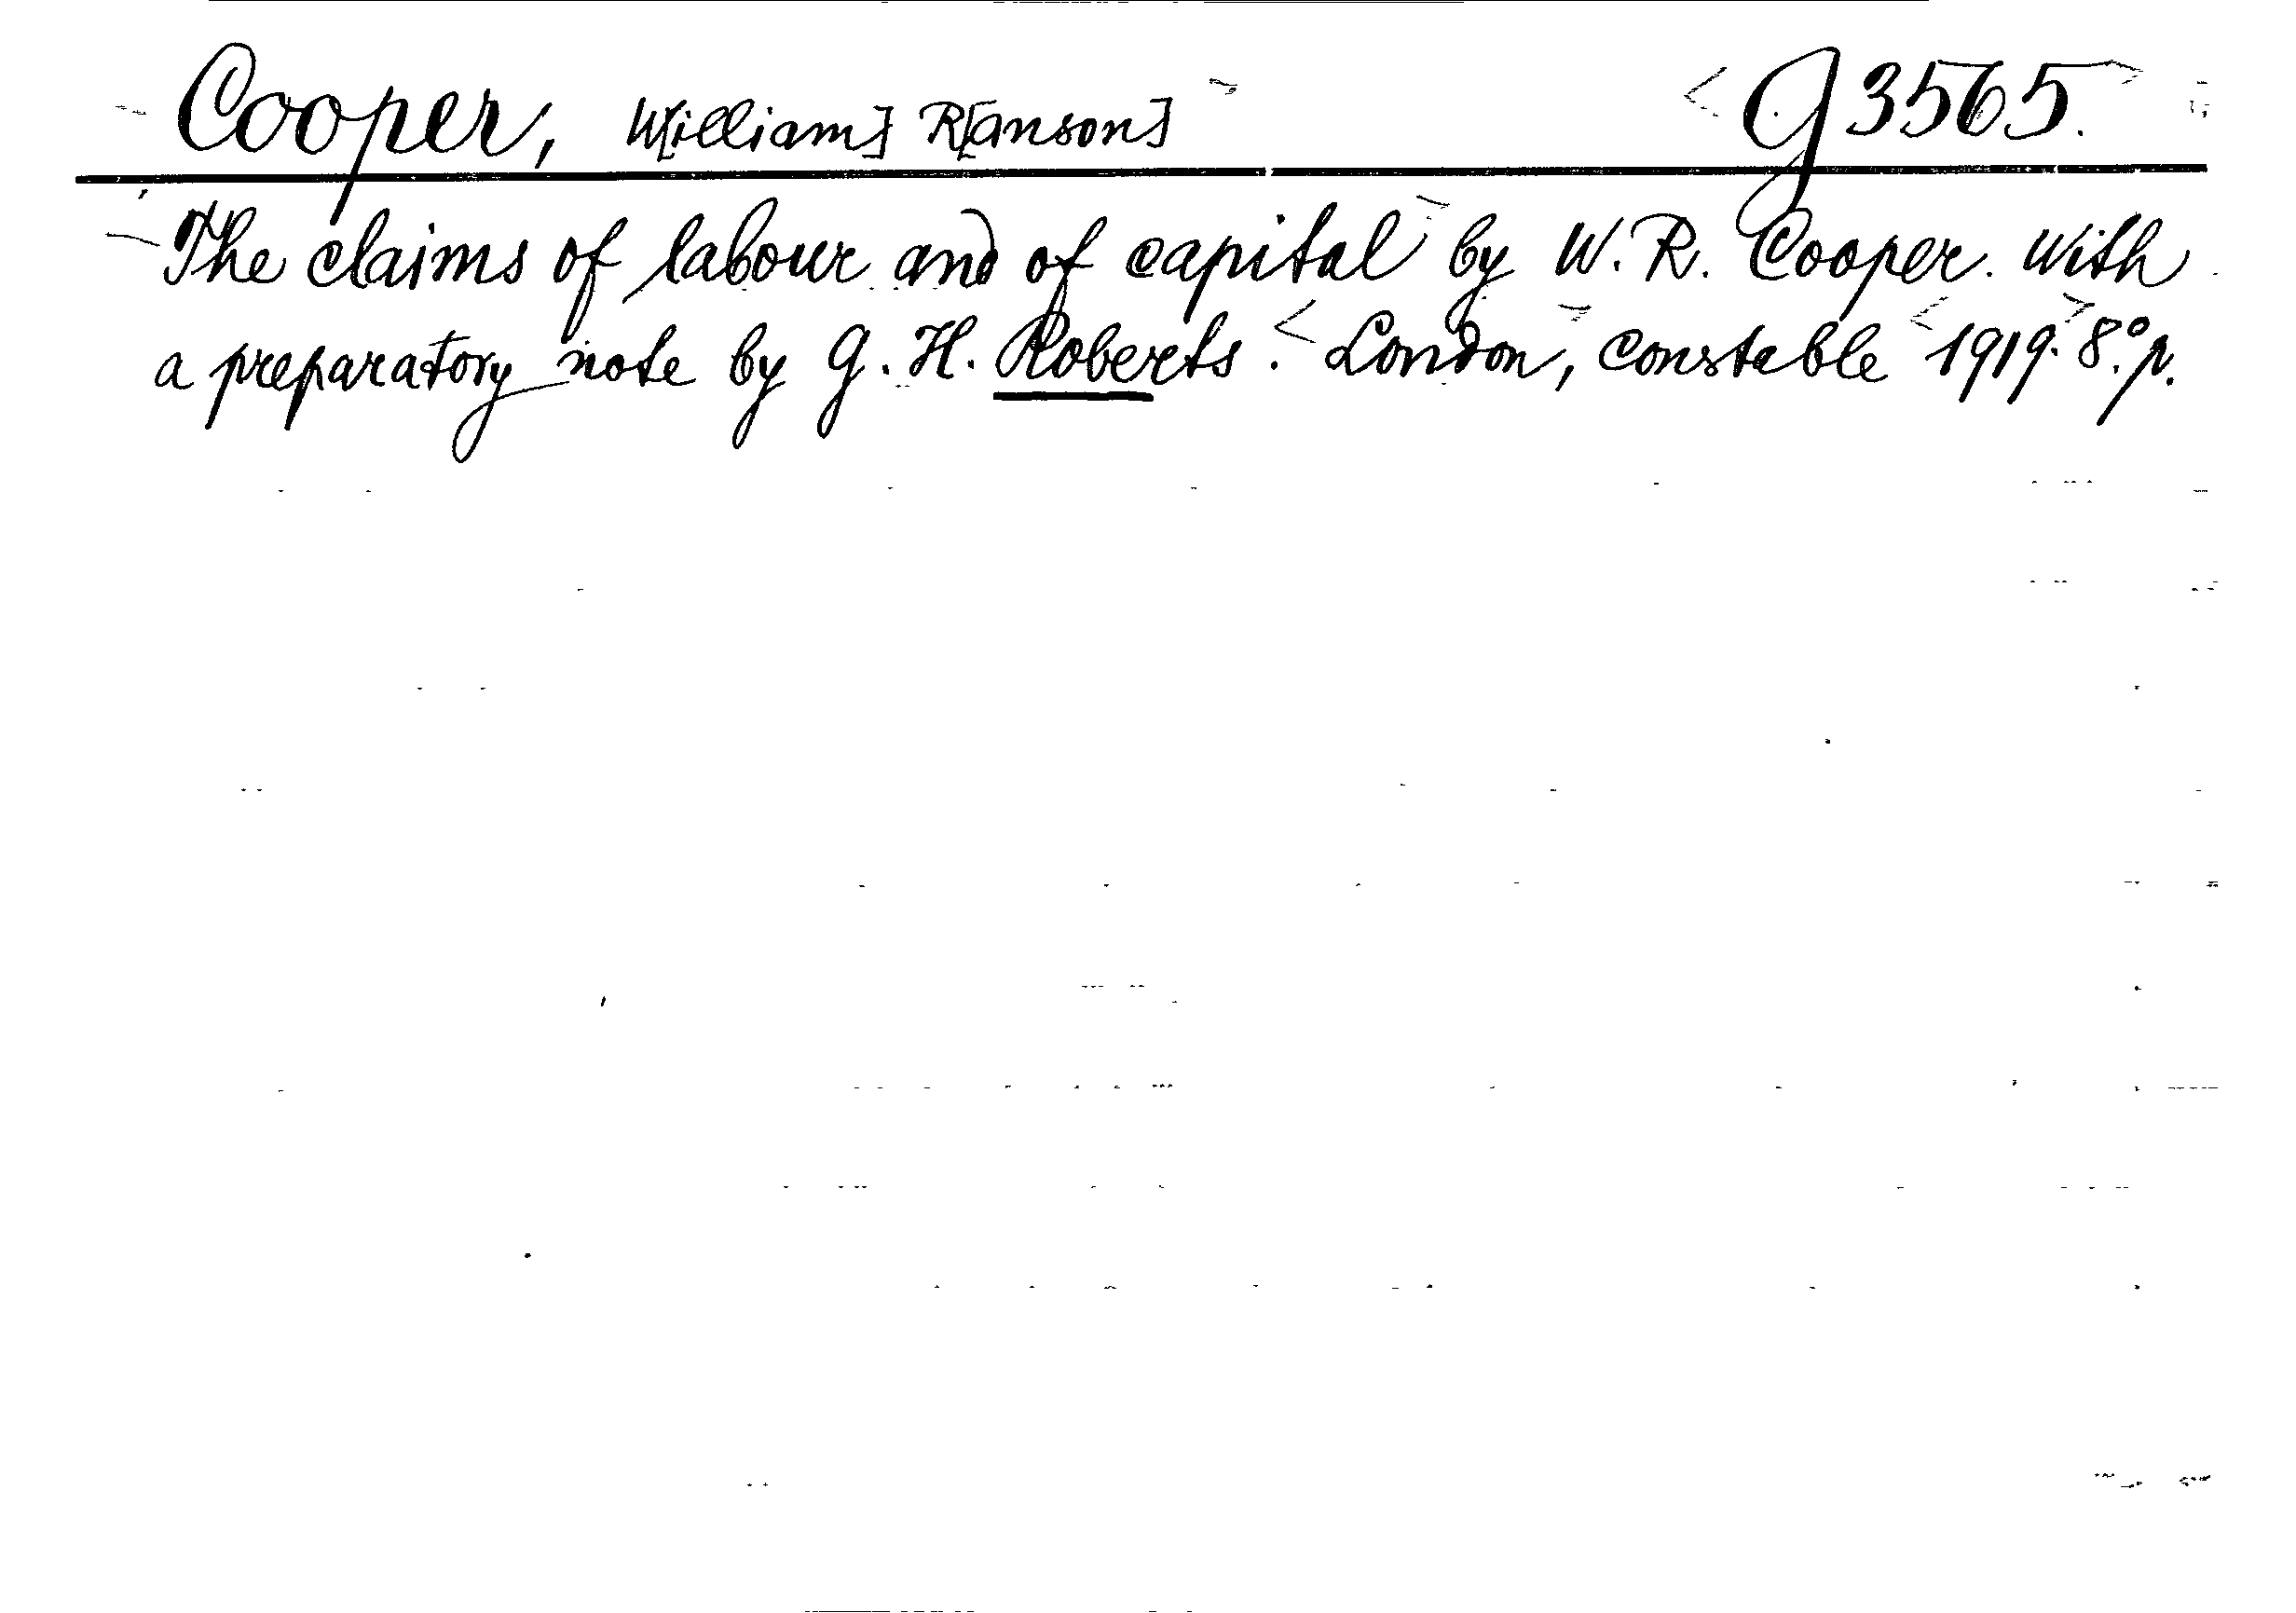 Cooper, W[illiam] R[anson] G 3565.
The claims of labour and of capital by W. R. Cooper. With
a preparatory note by G. H. Roberts. London, Constable 1919. 8°. p.